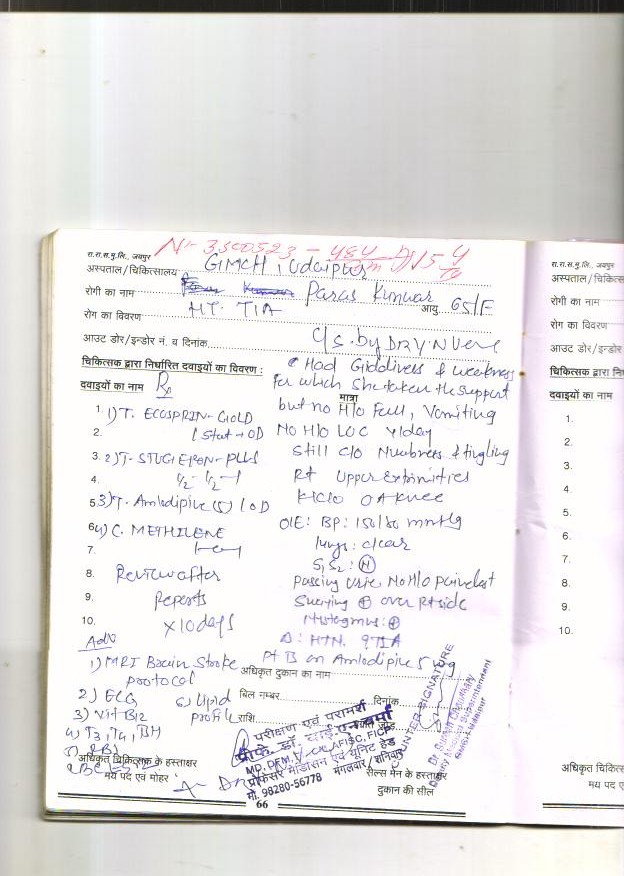 Nr 3300523 - 484
रा.रा.स.मु.लि., जयपुर
अस्पताल/चिकित्सालय GIMCH, Udaipur
रोगी का नाम Paras Kunwar आयु 65/F
रोग का विवरण HT. TIA
आउट डोर/इन्डोर नं. व दिनांक C/S. by DR Y.N Verma
चिकित्सक द्वारा निर्धारित दवाइयों का विवरण :
दवाइयों का नाम Rx
मात्रा
Had Giddiness & weakness
For which She taken the support
but no H/o Fall, Vomiting
No H/o LOC 1day
Still C/o Numbness & tingling
Rt Upper Extremities
K/C/O OA Knee
O/E: BP: 150/80 mmHg
lungs: clear
S1 S2: N
Passing urine, No H/o
over Rt side
Nystagmus: +
Δ: HTN. ? TIA
Pt is on Amlodipine 5 mg
1. 1) T. ECOSPRIN-GOLD
2. 1 Stat → OD
3. 2) T- STUGERON-PLUS
4. ½-½-1
5. 3) T. Amlodipine (5) 1 OD
6. 4) C. METHILENE
7.
8. Review after
9. Reports
10. x 10 days
Adv
1) MRI Brain Stroke
protocol
2) ECG
3) Vit B12
6) Lipid
profile
अधिकृत दुकान का नाम
बिल नम्बर दिनांक
राशि
परीक्षण एवं परामर्श
प्रोफे. डॉ. वाई.एन. वर्मा
प्रोफेसर मेडिसिन एवं यूनिट हेड
मो. 98280-56778 मंगलवार/शनिवार
COUNTER SIGNATURE
Deputy Medical Superintendent
अधिकृत चिकित्सक के हस्ताक्षर
मय पद एवं मोहर
सेल्स मेन के हस्ताक्षर
दुकान की सील
66
रा.रा.स.मु.लि., जयपुर
अस्पताल/चिकित्स
रोगी का नाम
रोग का विवरण
आउट डोर/इन्डोर
चिकित्सक द्वारा नि
दवाइयों का नाम
1.
2.
3.
4.
5.
6.
7.
8.
9.
10.
अधिकृत चिकित्स
मय पद ए